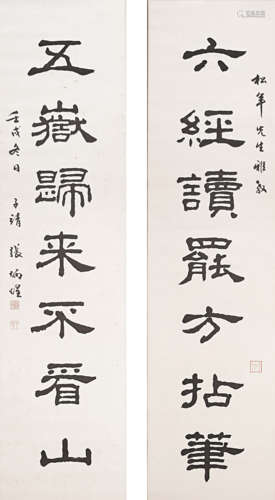 松年先生雅教
六經讀罷方拈筆
五嶽歸来不看山
壬戌冬日 子靖 張炳煌